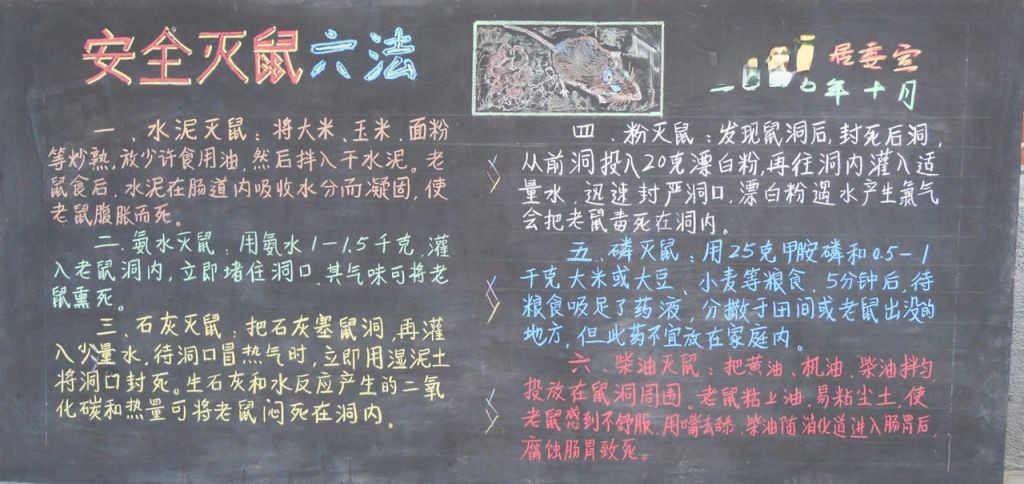 安全灭鼠六法
居委宣
年十月
一、水泥灭鼠：将大米、玉米、面粉
等炒熟，放少许食用油，然后拌入干水泥。老
鼠食后，水泥在肠道内吸收水分而凝固，使
老鼠腹胀而死。
二、氨水灭鼠：用氨水1-1.5千克，灌
入老鼠洞内，立即堵住洞口，其气味可将老
鼠熏死。
三、石灰灭鼠：把石灰塞鼠洞，再灌
入少量水，待洞口冒热气时，立即用湿泥土
将洞口封死。生石灰和水反应产生的二氧
化碳和热量可将老鼠闷死在洞内。
四、粉灭鼠：发现鼠洞后，封死后洞，
从前洞投入20克漂白粉，再往洞内灌入适
量水，迅速封严洞口，漂白粉遇水产生氯气
会把老鼠毒死在洞内。
五、磷灭鼠：用25克甲胺磷和0.5-1
千克大米或大豆、小麦等粮食，5分钟后，待
粮食吸足了药液，分撒于田间或老鼠出没的
地方，但此药不宜放在家庭内。
六、柴油灭鼠：把黄油、机油、柴油拌匀，
投放在鼠洞周围。老鼠粘上油，易粘尘土，使
老鼠感到不舒服，用嘴去舔，柴油随消化道进入肠胃后，
腐蚀肠胃致死。